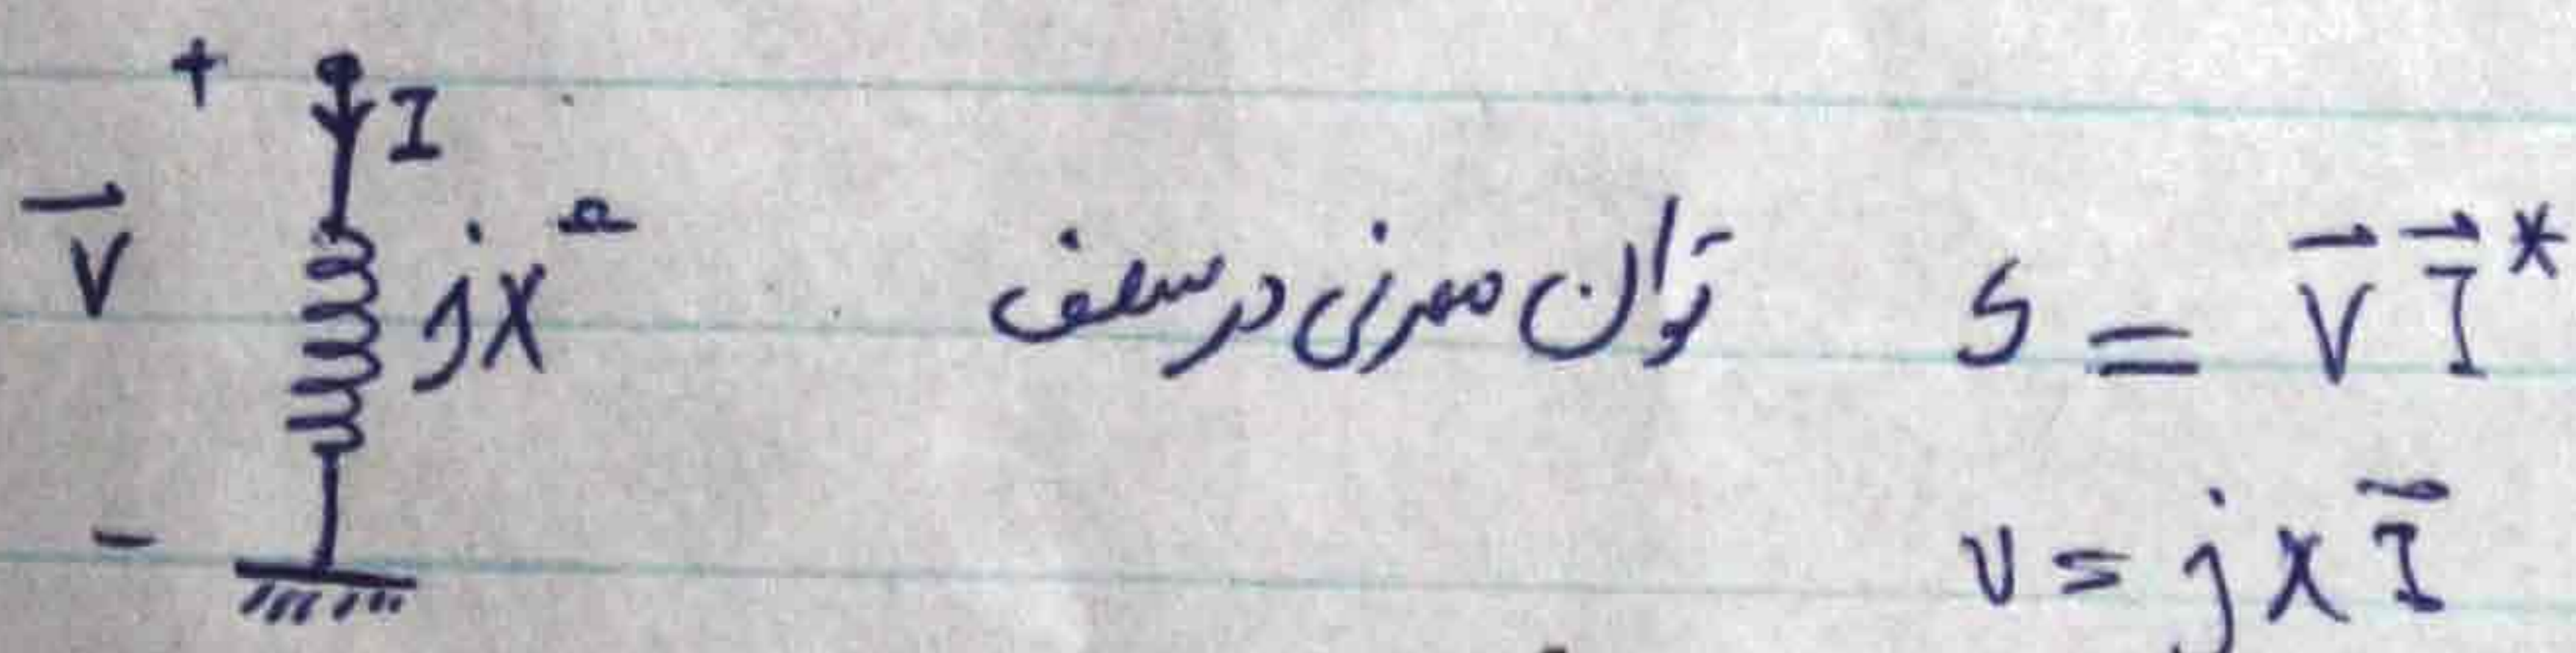 +
I
V⃗
jX^Ω
توان مصرفی در سلف
S = V⃗ I⃗*
V = jX I⃗
-